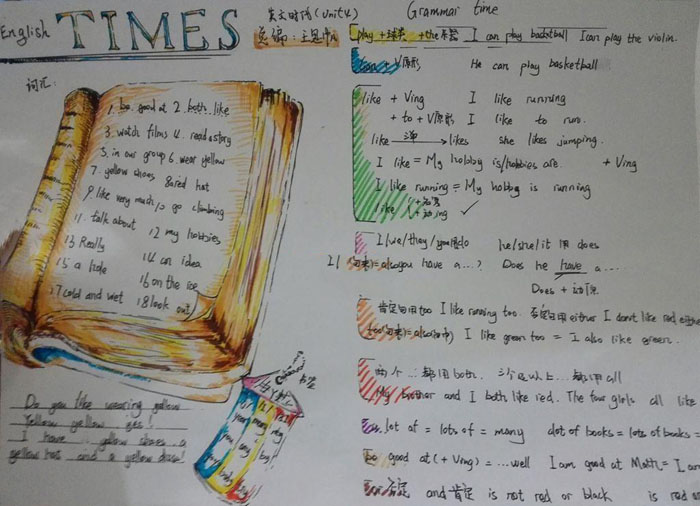 English TIMES
英文时代 (Unit4)
总编:
词汇:
1. be good at 2. both like
3. watch films 4. read a story
5. in our group 6. wear yellow
7. yellow shoes 8 a red hat
9. like very much 10 go climbing
11. talk about 12 my hobbies
13 Really 14 an idea
15 a hole 16 on the ice
17 cold and wet 18 look out
Do you like wearing yellow
Yellow yellow yes!
I have yellow shoes a
yellow hat and a yellow
Grammar time
play +球类 +the 乐器 I can play basketball I can play the violin.
can + V原形 He can play basketball
like + Ving I like running
+ to + V原形 I like to run.
like → likes she likes jumping.
I like = My hobby is/hobbies are. + Ving
I like running = My hobby is running
like
I/we/they/you用do he/she/it 用 does
you have a...? Does he have a...
Does + 动原
肯定句用too I like running too. 否定句用either I don't like red either
I like green too = I also like green.
两个...都用both. 三个及以上...都用all
My brother and I both like red. The four girls all like
a lot of = lots of = many a lot of books = lots of books =
be good at (+ Ving) = ...well I am good at Math = I am
否定 and 肯定 is not red or black is red